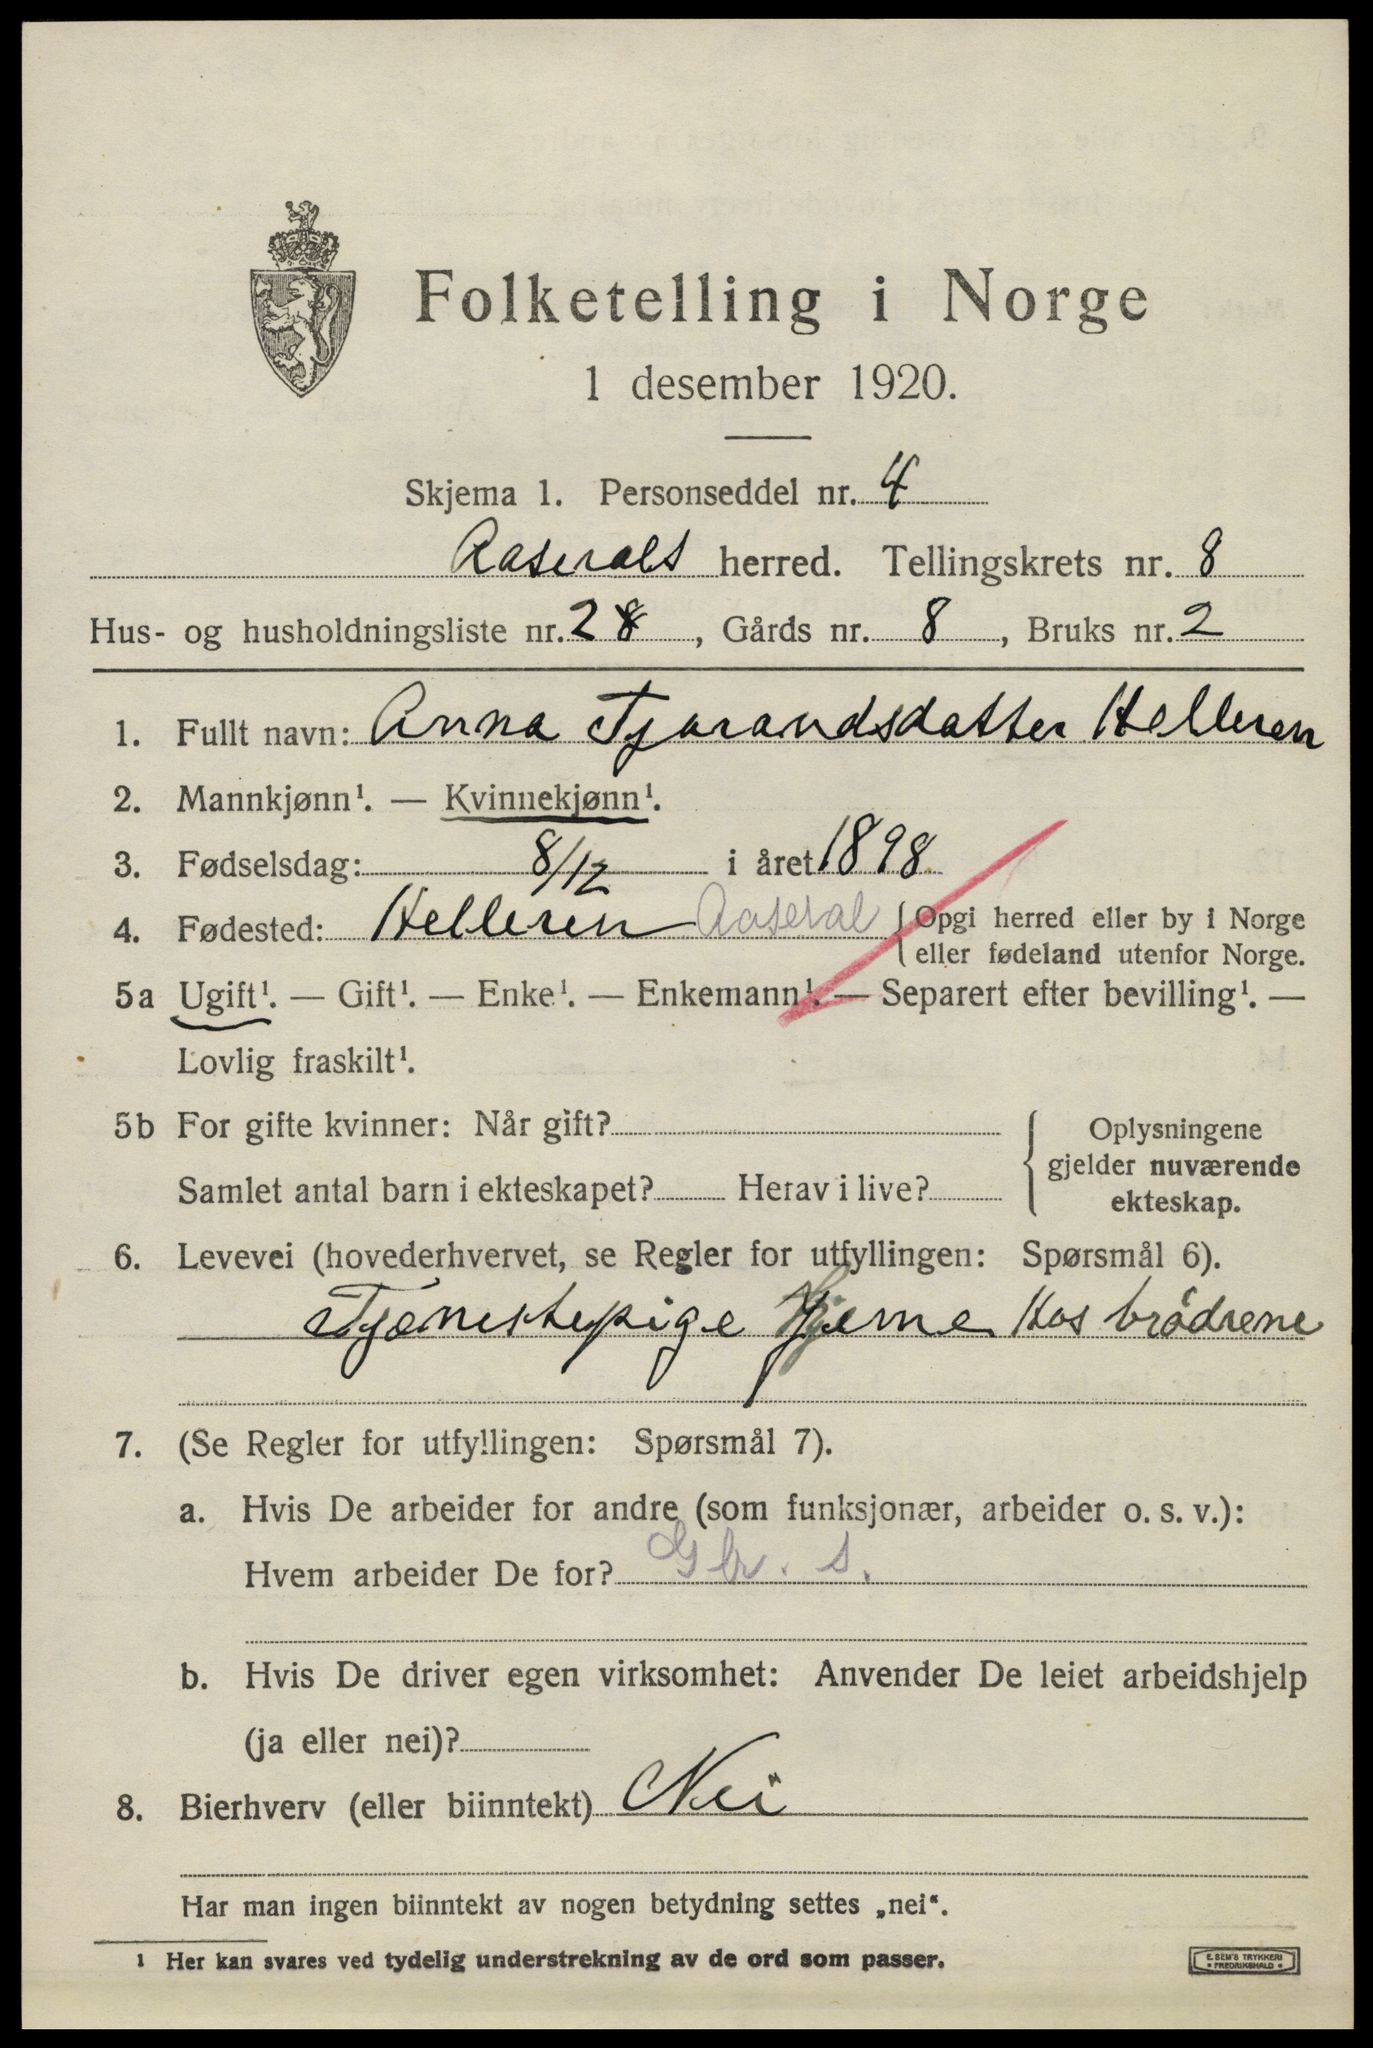 Folketelling i Norge
1 desember 1920.
Skjema 1. Personseddel nr. 4
Aaserals herred. Tellingskrets nr. 8
Hus- og husholdningsliste nr. 28, Gårds nr. 8, Bruks nr. 2
1. Fullt navn: Anna Tjarandsdatter Helleren
2. Mannkjønn¹. — Kvinnekjønn¹.
3. Fødselsdag: 8/12 i året 1898
4. Fødested: Helleren Aaseral { Opgi herred eller by i Norge
eller fødeland utenfor Norge.
5a Ugift¹. — Gift¹. — Enke¹. — Enkemann¹. — Separert efter bevilling¹. —
Lovlig fraskilt¹.
5b For gifte kvinner: Når gift?
Samlet antal barn i ekteskapet? Herav i live?
{ Oplysningene
gjelder nuværende
ekteskap.
6. Levevei (hovederhvervet, se Regler for utfyllingen: Spørsmål 6).
Tjænestepige hjeme Hos brødrene
7. (Se Regler for utfyllingen: Spørsmål 7).
a. Hvis De arbeider for andre (som funksjonær, arbeider o. s. v.):
Hvem arbeider De for? Gbr. s.
b. Hvis De driver egen virksomhet: Anvender De leiet arbeidshjelp
(ja eller nei)?
8. Bierhverv (eller biinntekt) Nei
Har man ingen biinntekt av nogen betydning settes „nei“.
¹ Her kan svares ved tydelig understrekning av de ord som passer.
E. SEM'S TRYKKERI
• FREDRIKSHALD •